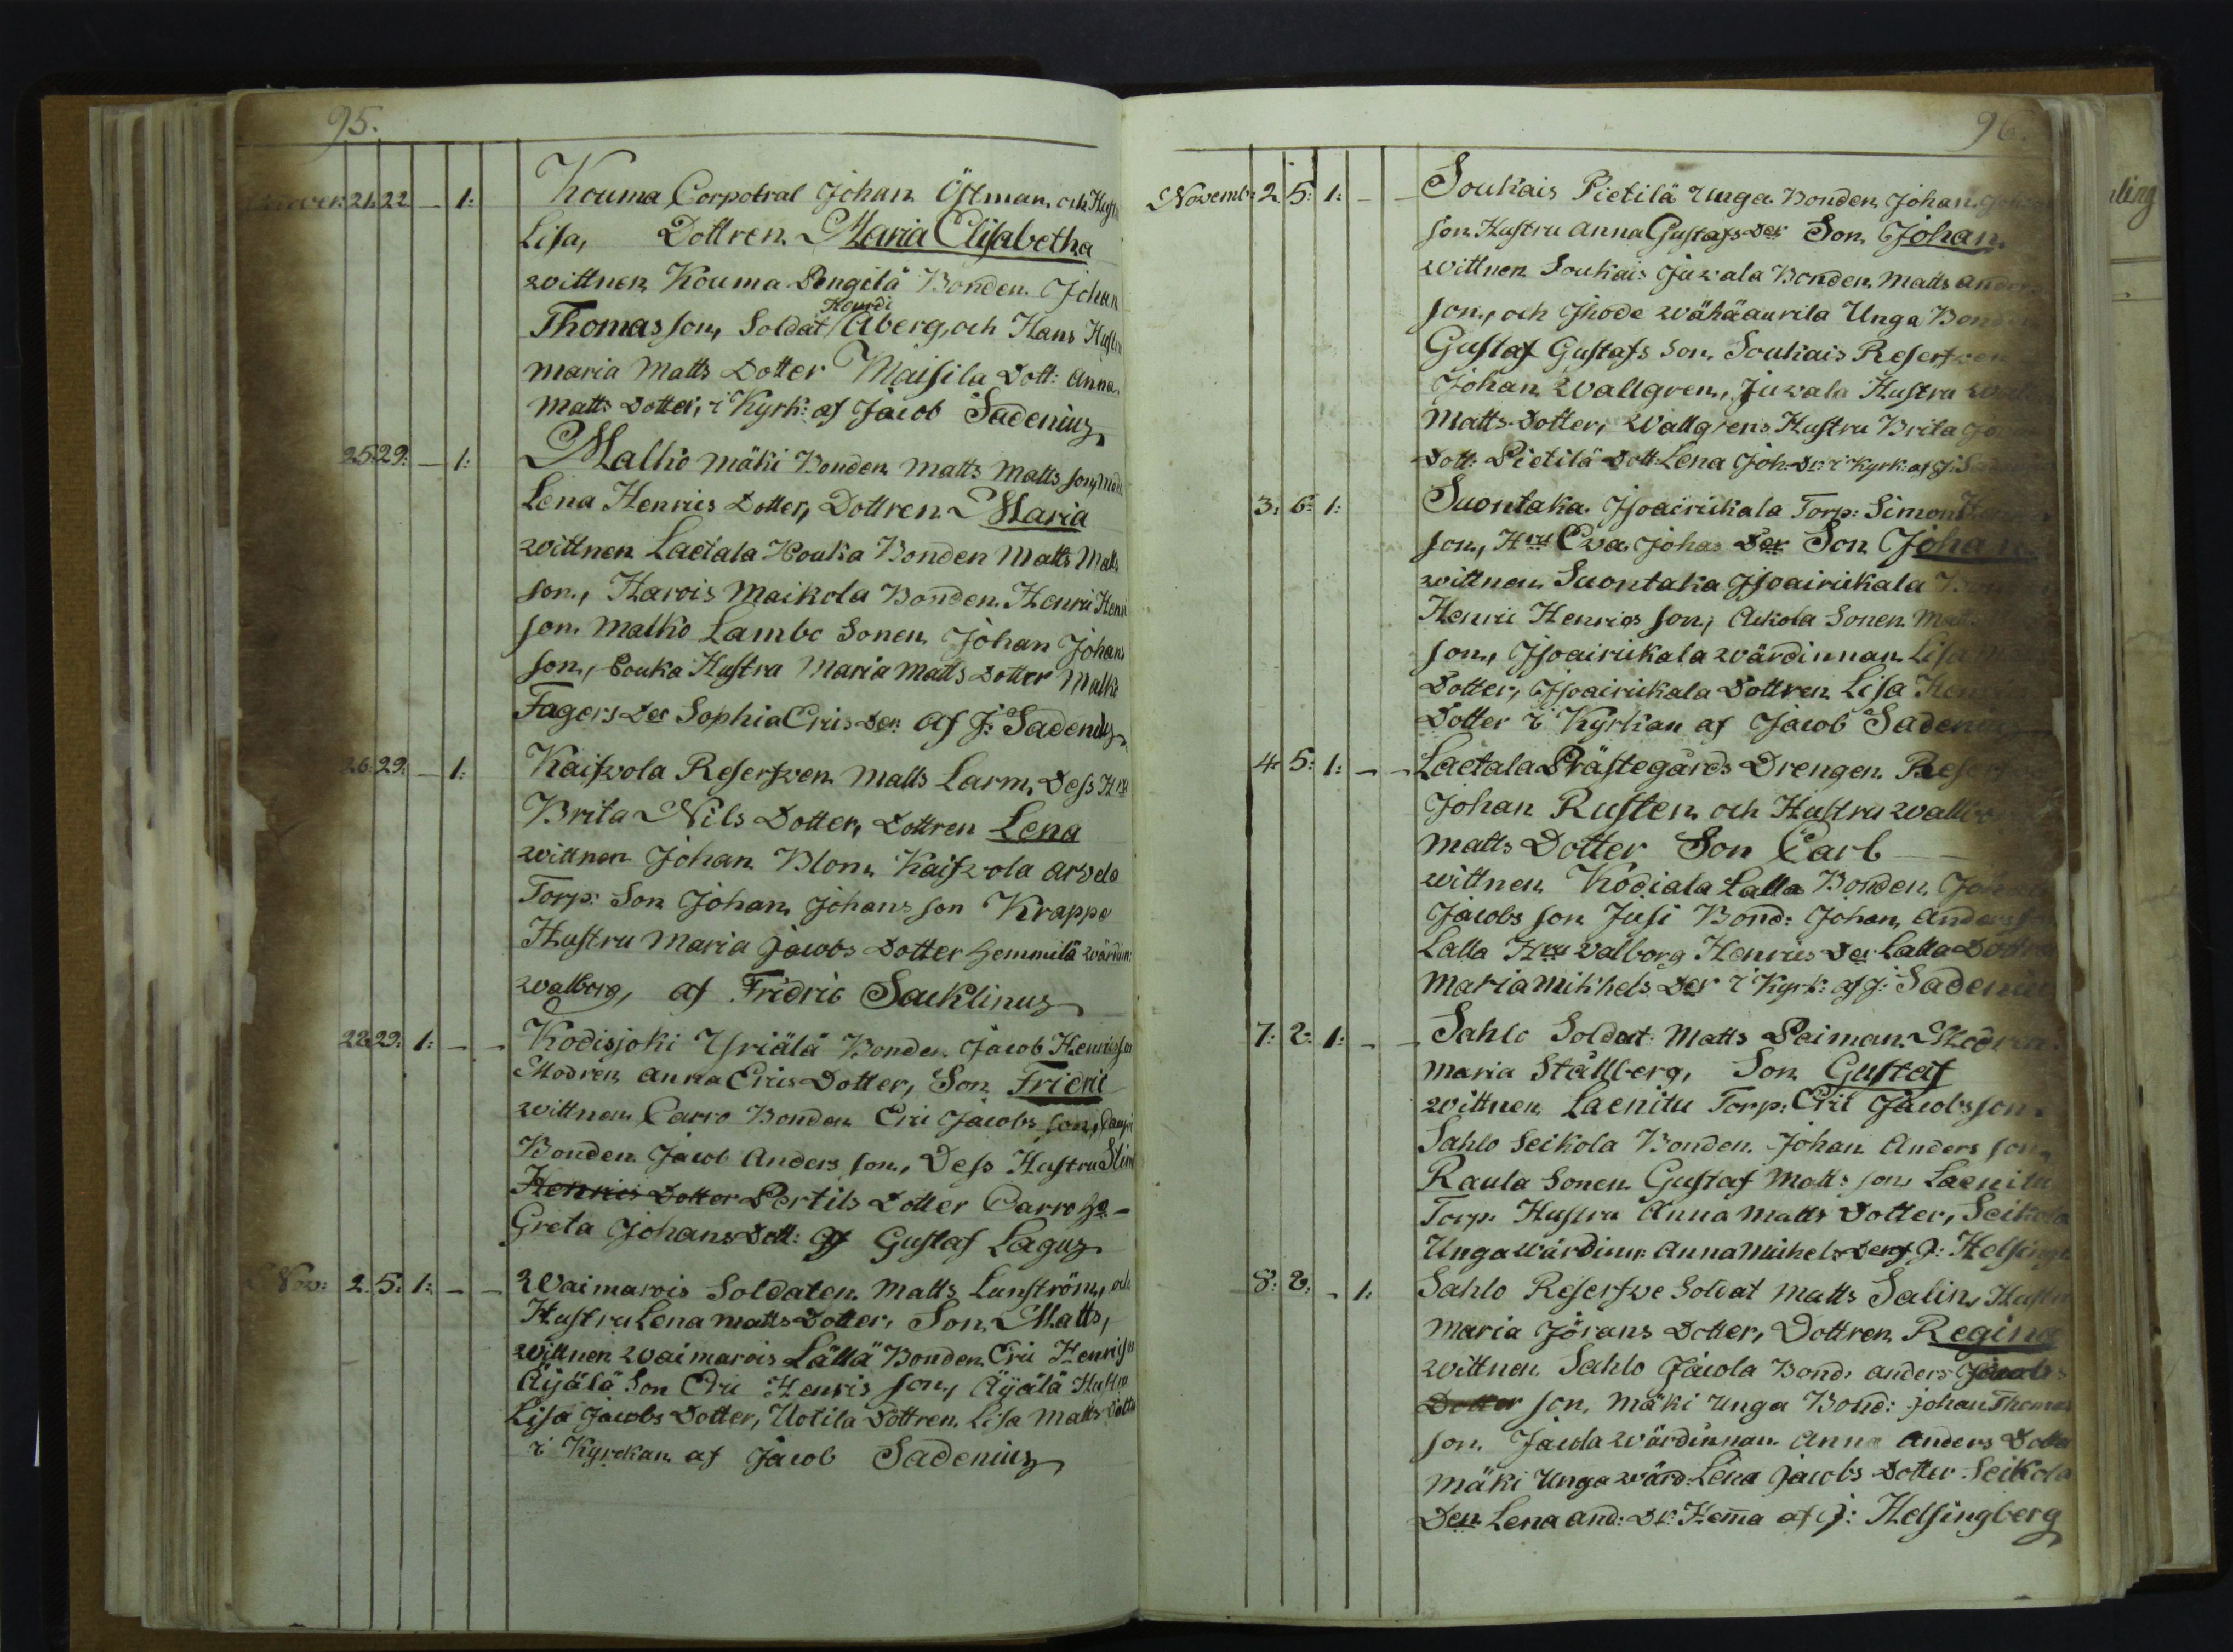 95.
21. 22. — 1: Kouma Corpotral Johan Östman, och Hustru
Lisa, Dottren Maria Elisabetha
wittnen Kouma Pengilä Bonden Johan
Henrdi
Thomas son, Soldat Åberg, och Hans Hustru
maria Matts Dotter Maisila Dott: Anna
Matts Dotter, i Kyrk: af Jacob Sadenius
25. 29. — 1: Malko mäki Bonden Matts Matts son, Mod:
Lena Henrics Dotter, Dottren Maria
wittnen Laetala Houka Bonden Matts Matts
son, Harois Maikola Bonden Henric Henri
son Malko Lambo Sonen Johan Johans
son, Couka Hustru Maria Matts Dotter Malko
Fagers Der Sophia Erics Der af J: Sadenius
26. 29. — 1: Kaisvola Reserfven Matts Larm, Dess Hru
Brita Nils Dotter, Dottren Lena
wittnen Johan Blom Kaifvola Arvela
Torp: Son Johan Johans son Krappe
Hustru Maria Jacobs Dotter Hemmilä wärdin:
walborg, af Fridric Sacklinus
22. 29. 1: — — Kodisjoki Yriälä Bonden Jacob Henrics son
Modren Anna Erics Dotter, Son Fridric
wittnen Carro Bonden Eric Jacobs son,
Bonden Jacob Anders son, Dess Hustru Stina
Henrics Dotter Pertils Dotter Carro
Greta Johans Dott: af Gustaf Lagus
Nov: 2. 5. 1: — — Waimarois Soldaten Matts Lunström, och
Hustru Lena Matts Dotter, Son Matts,
wittnen Waimarois Lällä Bonden Eric Henrics
Äijälä Son Eric Henrics son, Äyälä Hustru
Lisa Jacobs Dotter, Uotila Dottren Lisa Matts Dotter
i Kyrckan af Jacob Sadenius
96.
Novemb: 2. 5. 1: — — Soukais Pietilä Unga Bonden Johan
son Hustru Anna Gustafs Der Son Johan
wittnen Soukais Juvala Bonden Matts Anders
son, och Ihode wähäaurila Unga Bonden
Gustaf Gustafs Son Soukais Reserfven
Johan Wallgren, Juvala Hustru
Matts Dotter, Wallgrens Hustru Brita
Dott: Pietilä Dott: Lena Joh: Dr i Kyrk: af J:
3. 6. 1: Suontaka Isoairickala Torp: Simon
son, Hru Eva Johas Der Son Johan
wittnen Suontaka Isoairickala
Henric Henrics son, Ackola Sonen
son, Isoairickala wärdinnan Lisa
Dotter, Isoairickala Dottren Lisa
Dotter i Kyrkan af Jacob Sadenius
4. 5. 1: — — Laetala Prästegårds Drengen
Johan Rusten och Hustru Walborg
Matts Dotter Son Carl
wittnen Kodiala Lalla Bonden Johan
Jacobs son Jusi Bond: Johan Anders son
Lalla Hru Walborg Henrics Der Lalla Dottren
Maria Mikhels Der i Kyrk: af J: Sadenius
7. 8. 1: — — Sahlo Soldat Matts Peiman Modren
Maria Stållberg, Son Gustaf
wittnen Laenitu Torp: Eric Jacobs son
Sahlo Seikola Bonden Johan Anders son,
Raula Sonen Gustaf Matts son Laenitu
Torp: Hustru Anna Matts Dotter, Seikola
Unga wärdinn: Anna Michels Der af J: Helsingb
8: 8: — 1: Sahlo Reserfve Soldat Matts Salin, Hustru
Maria Jörans Dotter, Dottren Regina
wittnen Sahlo Jacola Bond: Anders Jacobs
Dotter son, Mäki Unga Bond: Johan Thomas
son Jacola wärdinnan Anna Anders Dotter
Mäki Unga wärd: Lena Jacobs Dotter Seikola
Den Lena And: Dr: Hema af J: Helsingberg